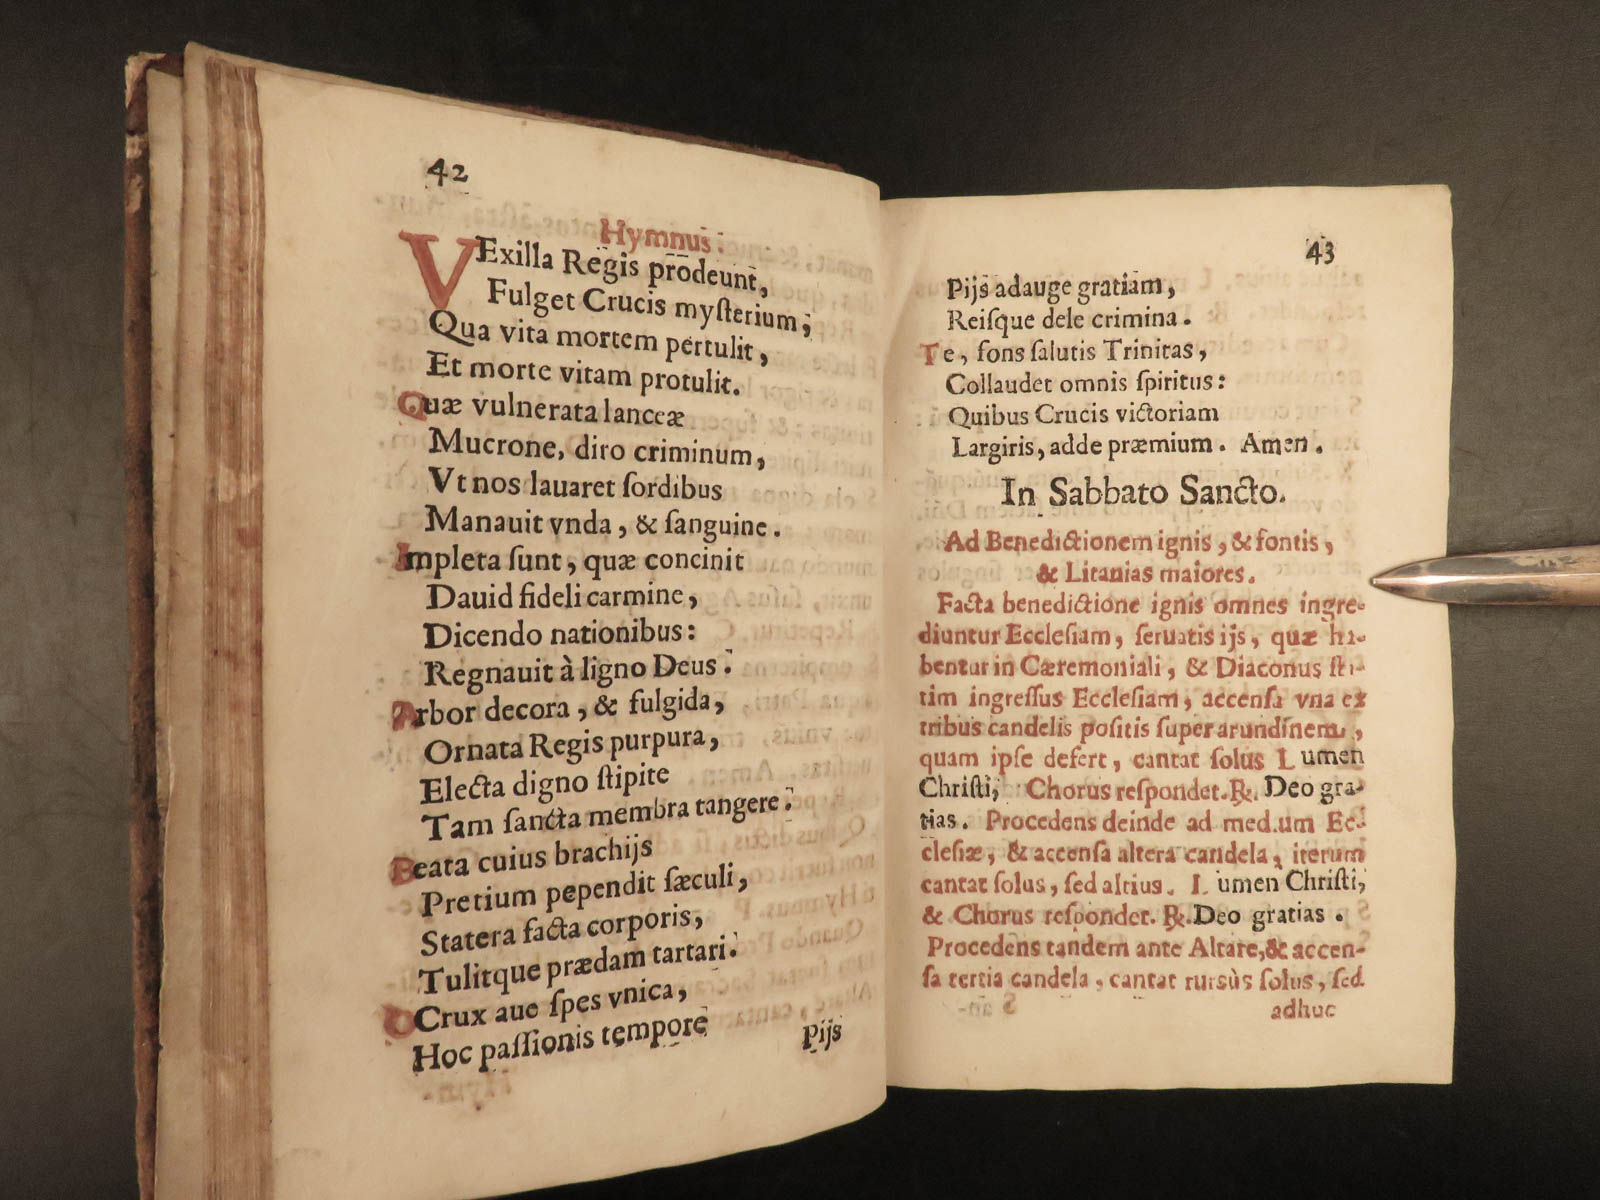 42
Hymnus.
VExilla Regis prodeunt,
Fulget Crucis myſterium;
Qua vita mortem pertulit,
Et morte vitam protulit.
Quæ vulnerata lanceæ
Mucrone, diro criminum,
Vt nos lauaret ſordibus
Manauit vnda, & ſanguine.
Impleta ſunt, quæ concinit
Dauid fideli carmine,
Dicendo nationibus:
Regnauit à ligno Deus.
Arbor decora, & fulgida,
Ornata Regis purpura,
Electa digno ſtipite
Tam ſancta membra tangere.
Beata cuius brachijs
Pretium pependit ſæculi,
Statera facta corporis,
Tulitque prædam tartari.
O Crux aue ſpes vnica,
Hoc paſſionis tempore
Pijs
43
Pijs adauge gratiam,
Reiſque dele crimina.
Te, fons ſalutis Trinitas,
Collaudet omnis ſpiritus:
Quibus Crucis victoriam
Largiris, adde præmium. Amen.
In Sabbato Sancto.
Ad Benedictionem ignis, & fontis,
& Litanias maiores.
Facta benedictione ignis omnes ingre-
diuntur Eccleſiam, ſeruatis ijs, quæ ha-
bentur in Cæremoniali, & Diaconus ſta-
tim ingreſſus Eccleſiam, accenſa vna ex
tribus candelis poſitis ſuper arundinem,
quam ipſe defert, cantat ſolus Lumen
Chriſti, Chorus reſpondet. ℟. Deo gra-
tias. Procedens deinde ad medium Ec-
cleſiæ, & accenſa altera candela, iterum
cantat ſolus, ſed altius. Lumen Chriſti,
& Chorus reſpondet. ℟. Deo gratias.
Procedens tandem ante Altare, & accen-
ſa tertia candela, cantat rursùs ſolus, ſed
adhuc